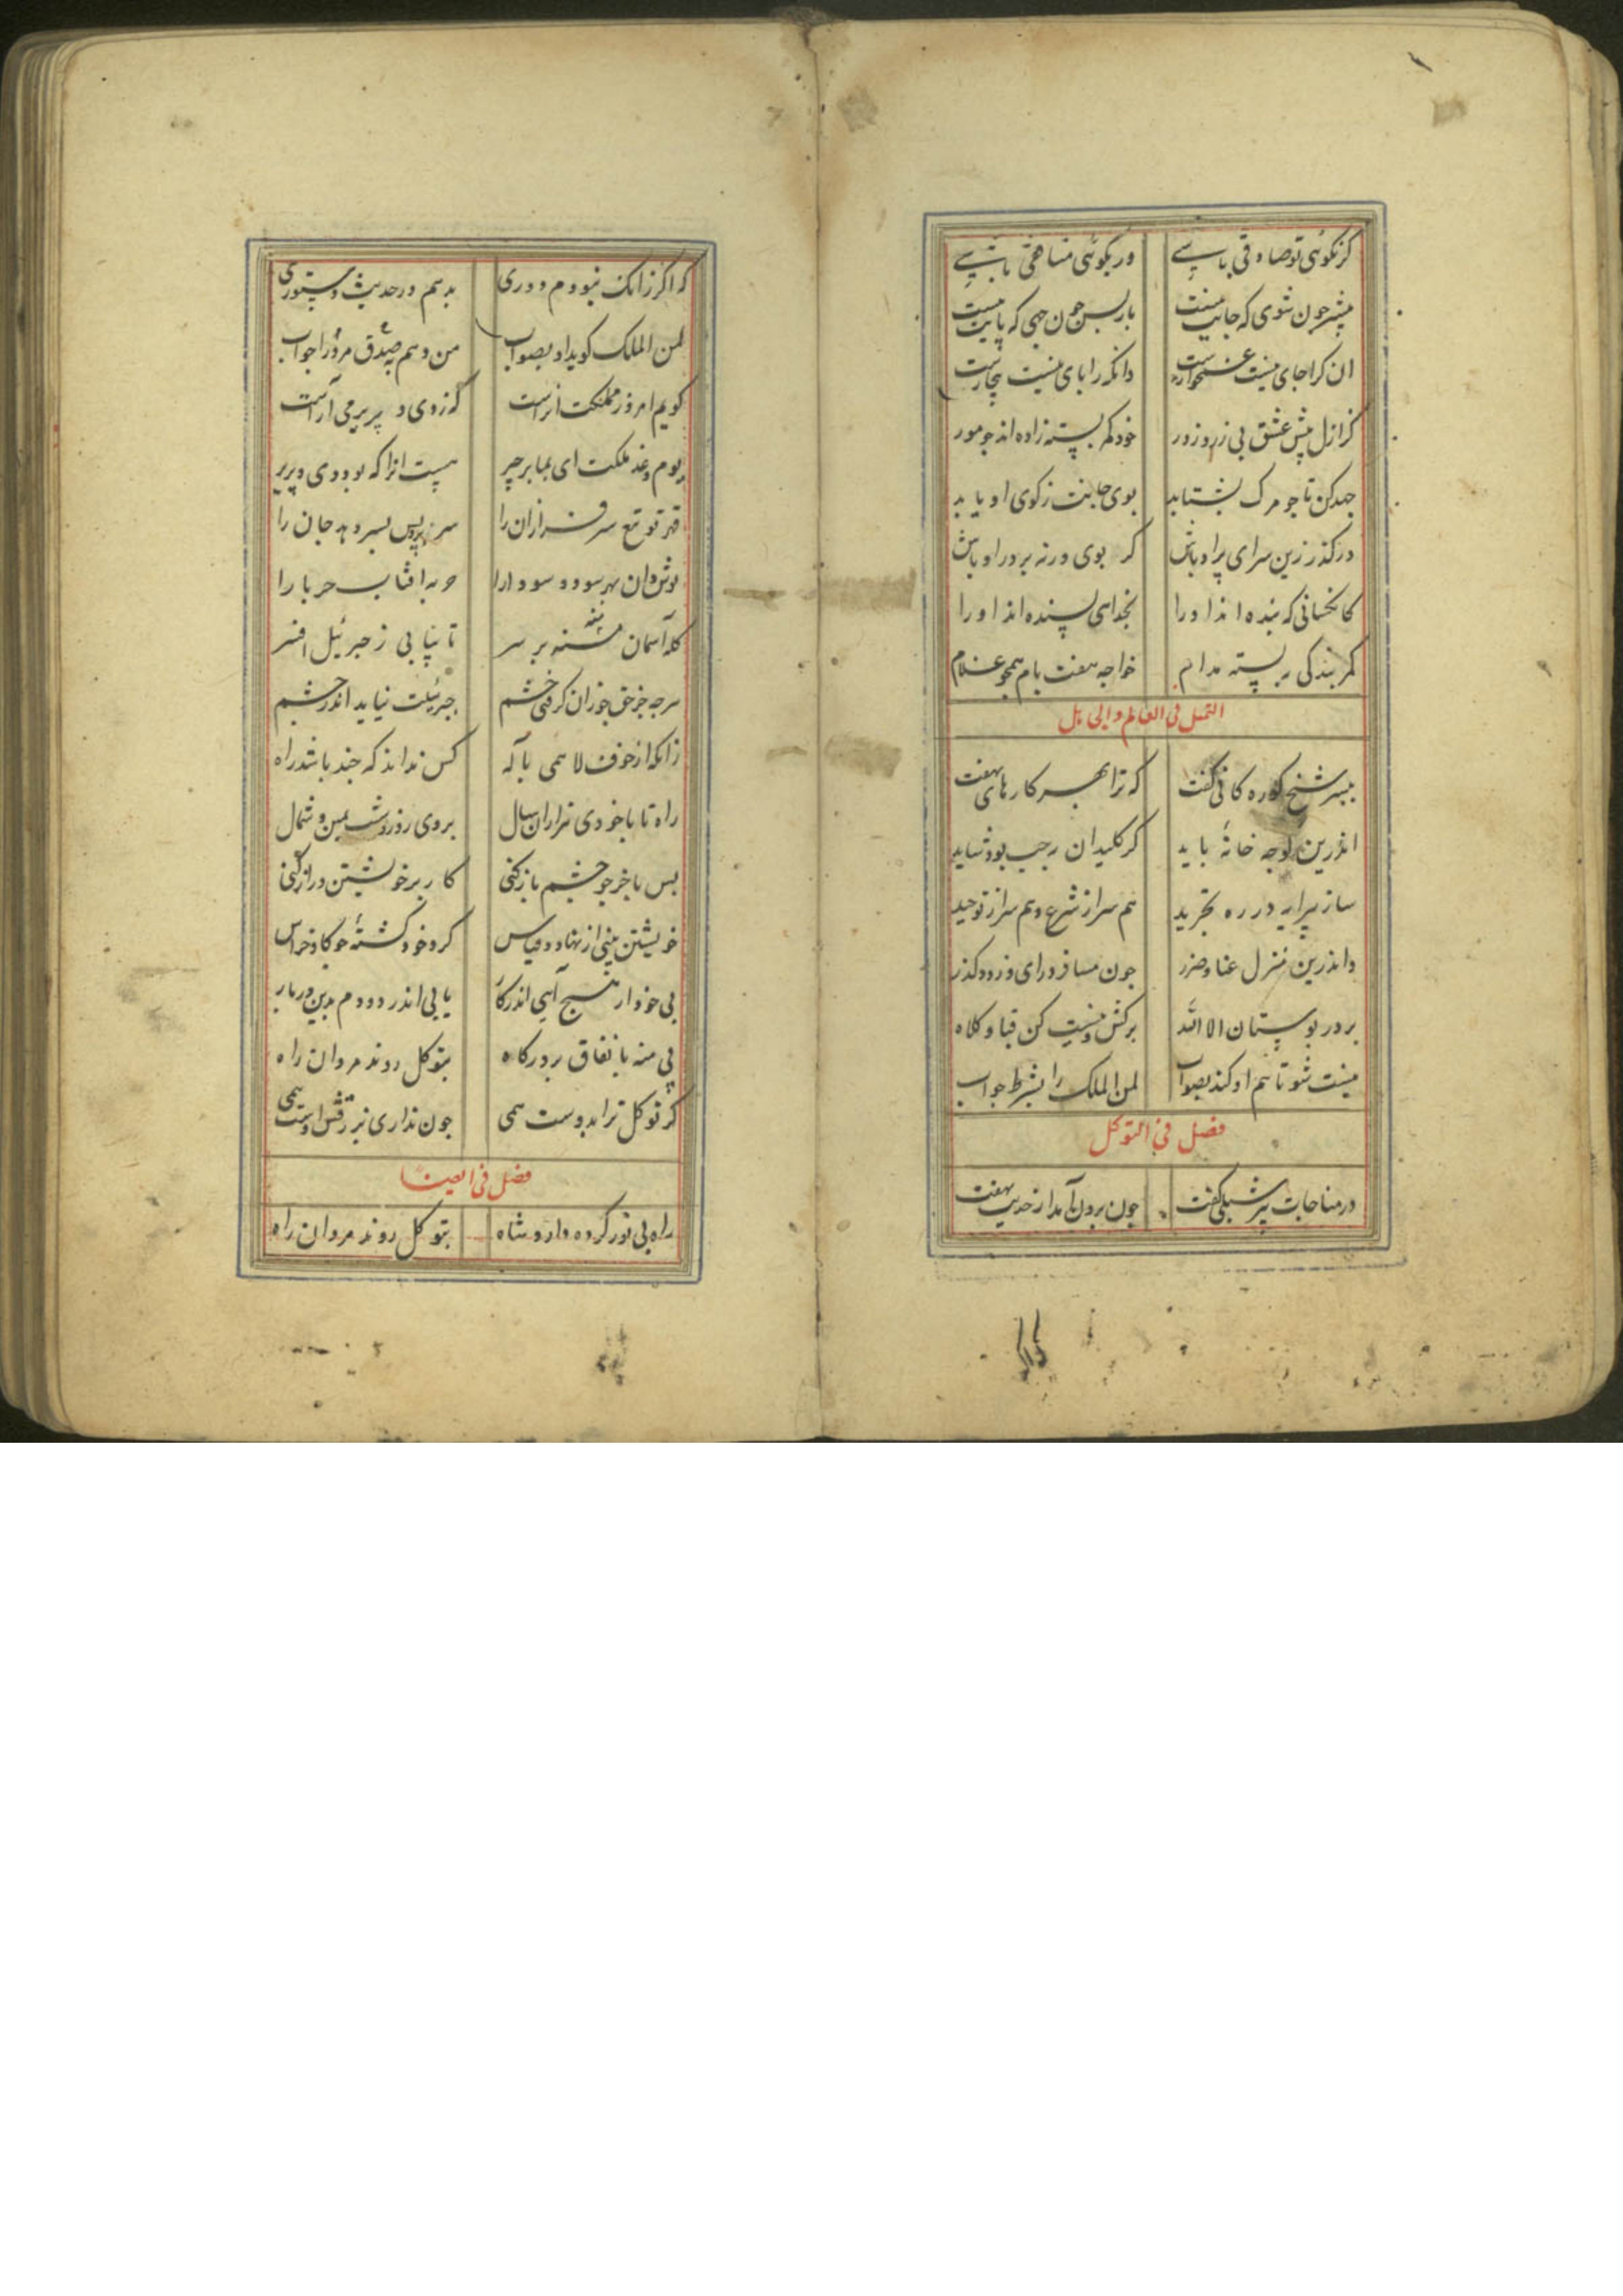 گر نگوئی تو صادقی باشی ور بگوئی منافقی باشی
پیشتر چون شوی که جایت نیست باز پس چون جهی که پایت نیست
ان کرا جای نیست غمخوارست وانکه را پای نیست بیچارست
کز ازل پیش عشق بی زر و زور خود کمر بسته زاده اند جو مور
جهد کن تا جو مرک بشتابد بوی جانت ز کوی او یابد
در کذر زین سرای پر اوباش کر بوی ورنه بر در او باش
کانکسانی که بنده اند او را بخدای بسنده اند او را
کمر بندکی ببسته مدام خواجه هفت بام همجو غلام
التمثیل فی
بیسر شیخ کوره کانی کفت که ترا بهر کارهای نهفت
اندرین کوجه خانهٔ باید کر کلیدان بجیب بود شاید
ساز پیرایه در ره تجرید هم سر از شرع و هم سر از توحید
واندرین منزل عنا و ضرر جون مسافر درای و زود کذر
بر در بوستان الا الله برکش و نیست کن قبا و کلاه
نیست شو تا هم او کند بصواب لمن الملک را بشرط جواب
فصل فی التوکل
در مناجات پیر شبلی کفت جون برون آمد از حدیث نهفت
که اکر زانک نبودم دوری بدهم در حدیث دستوری
لمن الملک کوید او بصواب من دهم بصدق مرورا جواب
کویم امروز مملکت انراست که ز دی و پریر می آراست
یوم و غد ملکت ای بما بر چیر هست انرا که بود دی و پریر
قهر تو تیغ سرفرازان را سر ز پیس بسر دهد جان را
نوش دان بهر سود و سودا را حربه افتاب حربا را
کله آسمان منه بر سر تا نیابی ز جبرئیل افسر
هرجه جز حق جو زان کرفتی خشم جبرئیلت نیاید اندر جشم
زانکه از حرف لا همی بآله کس نداند که جند باشد راه
راه تا با خودی هزاران سال بروی روز و شب یمین و شمال
بس باخر جو جشم باز کنی کار بر خویشتن دراز کنی
خویشتن بینی از نهاد و قیاس کرد خود کشتهٔ جو کاو خراس
بی خود ار هیچ آیی اندر کار یابی اندر دو دم بدین در بار
پی منه با نفاق بر درکاه بتوکل روند مردان راه
کر توکل ترا بدوست همی جون نداری برزقش اوست همی
فصل فی
بتوکل روند مردان راه